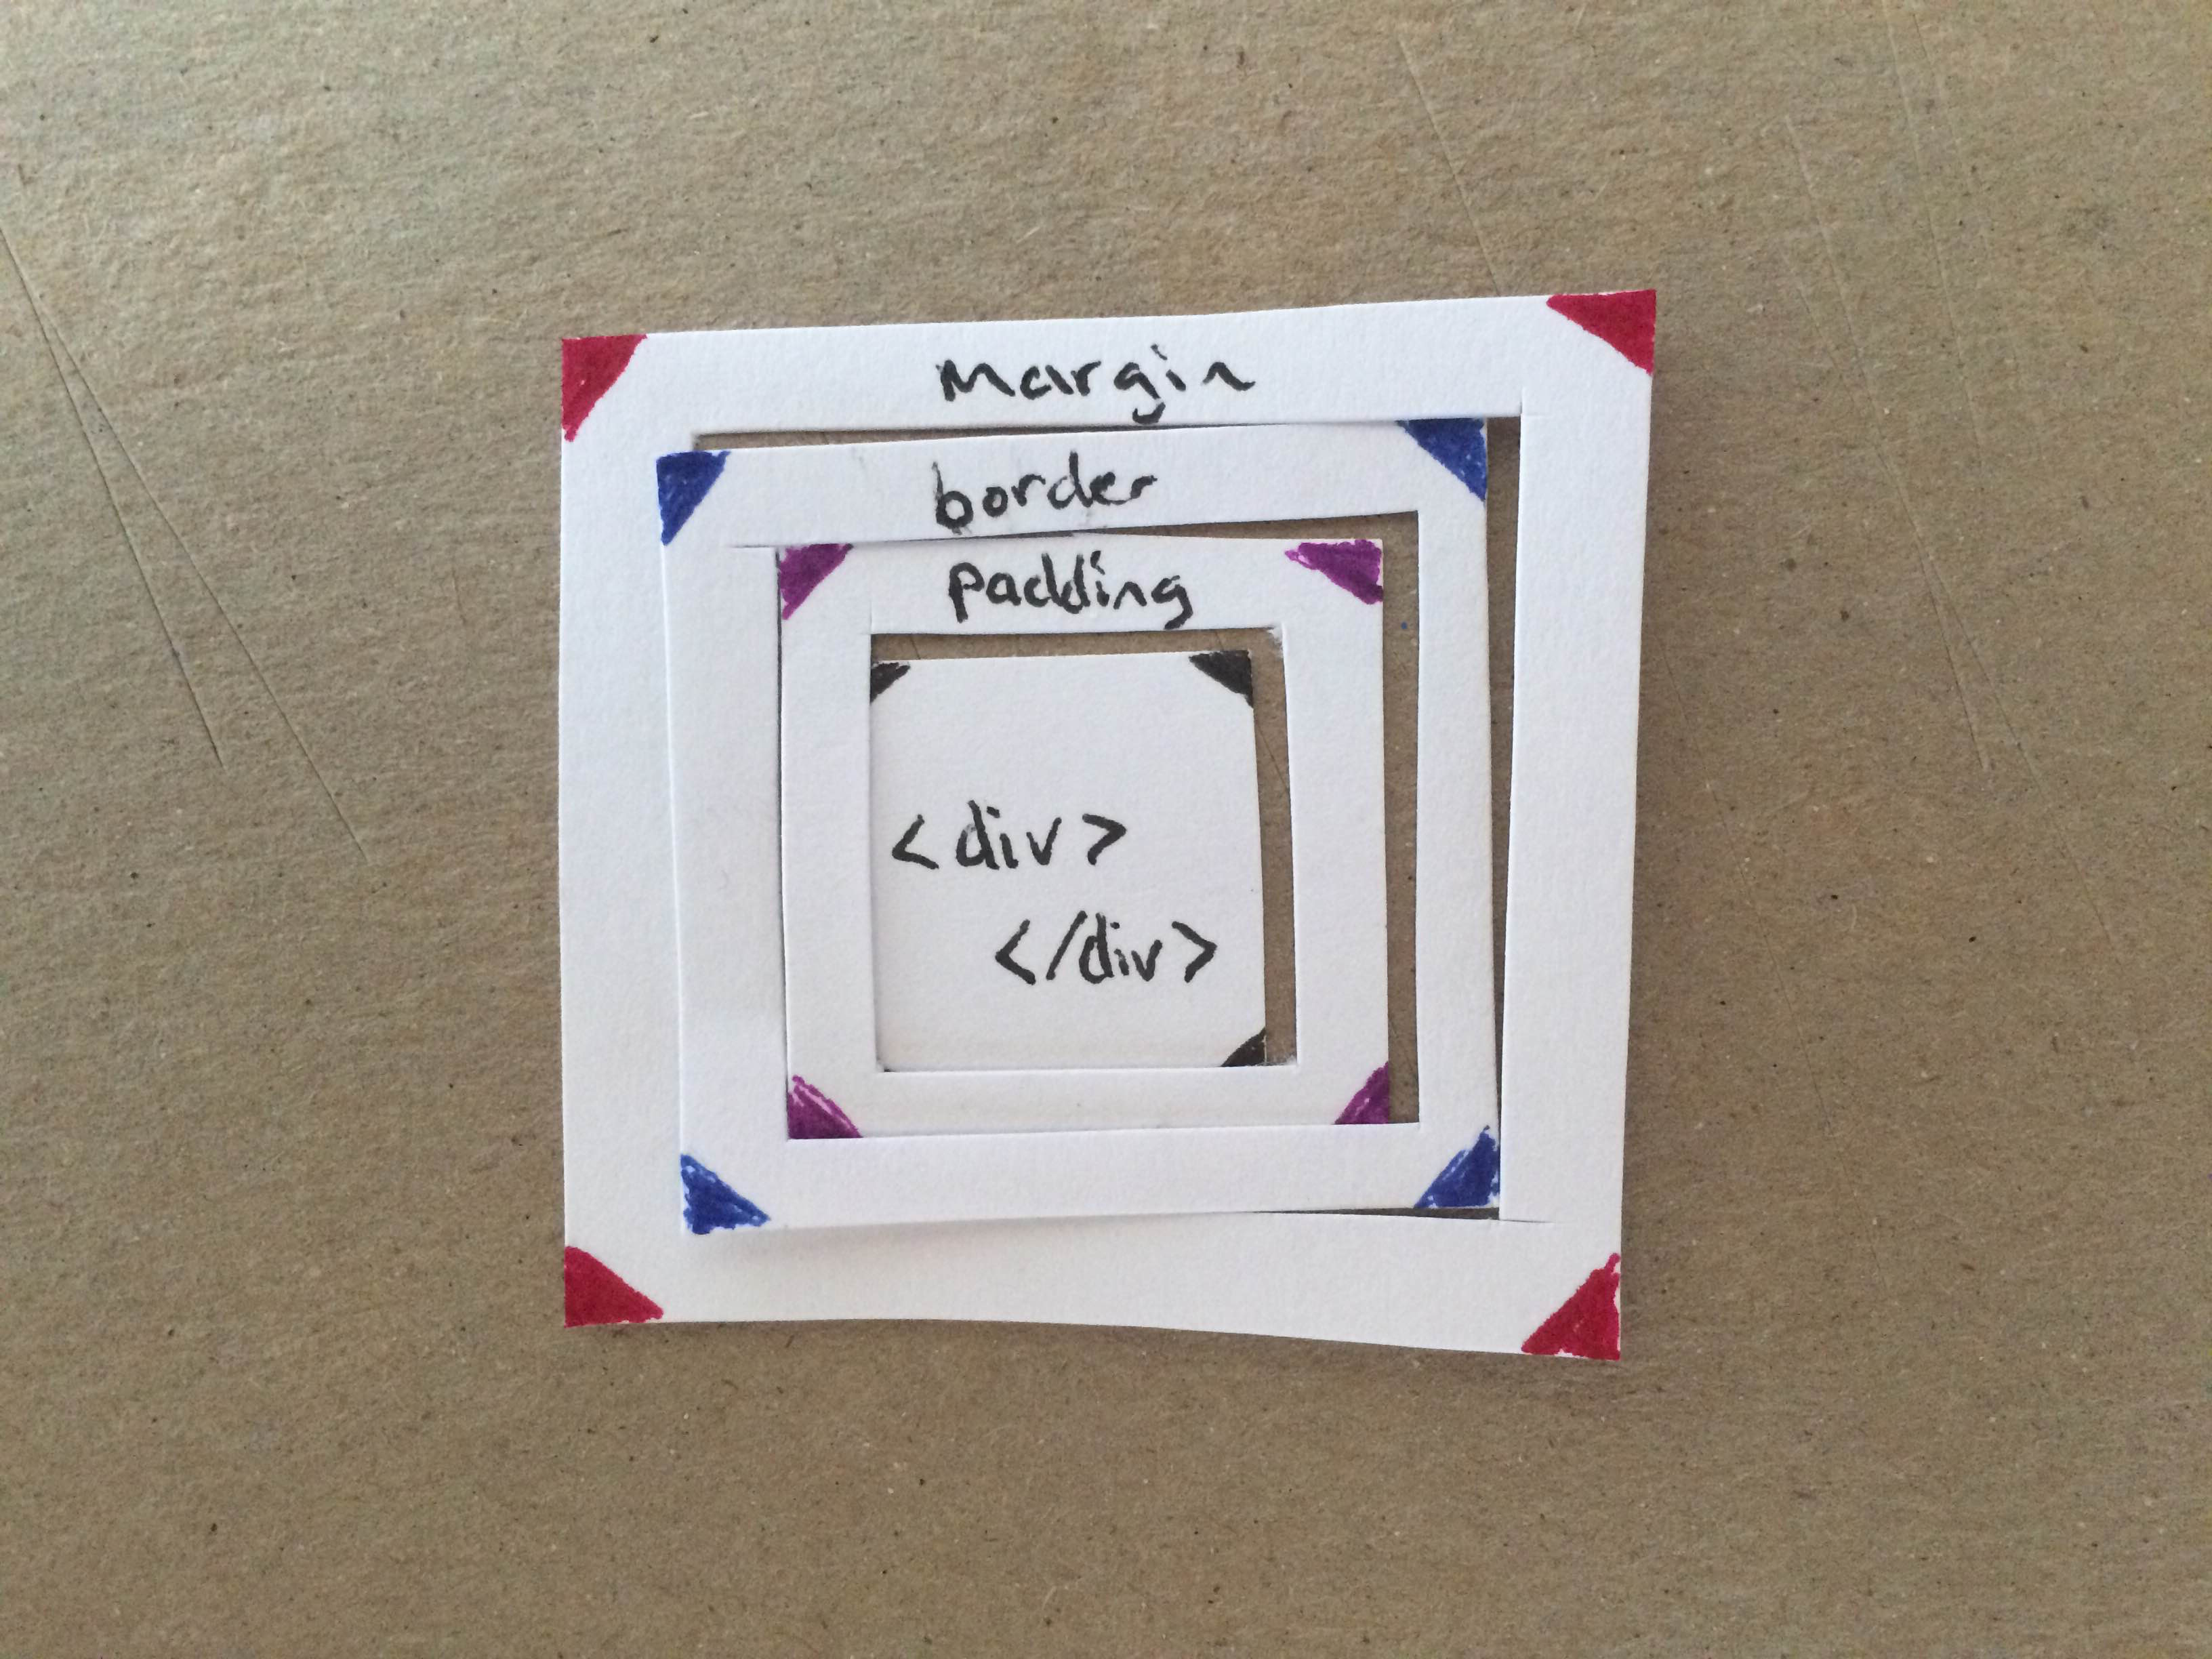 Margin
border
padding
<div>
</div>